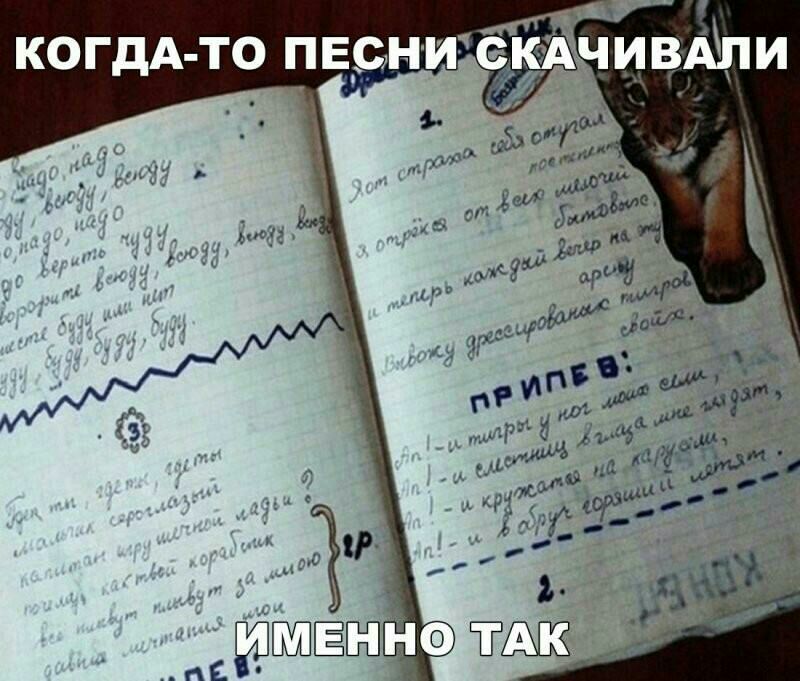 КОГДА-ТО ПЕСНИ СКАЧИВАЛИ
надо, надо
всюду, всюду
надо, надо
верить чуду
всюду, всюду, всюду, всюду
буду или нет
буду, буду, буду, буду.
3
Где ты, где ты, где ты
мальчик сероглазый
капитан игрушечной ладьи?
как твой кораблик
все плывут плывут за мною
давние мечтания мои
2р.
1.
Я от страха себя отучал
постепенно,
я отрёкся от всех мелочей
бытовых,
и теперь каждый вечер на эту
арену
Вывожу дрессированых тигров
своих.
ПРИПЕВ:
Ап!-и тигры у ног моих сели,
Ап!-и с лестниц в глаза мне глядят,
Ап!-и кружатся на карусели,
Ап!-и в обруч горящий летят.
2.
КОНЕЦ
ИМЕННО ТАК